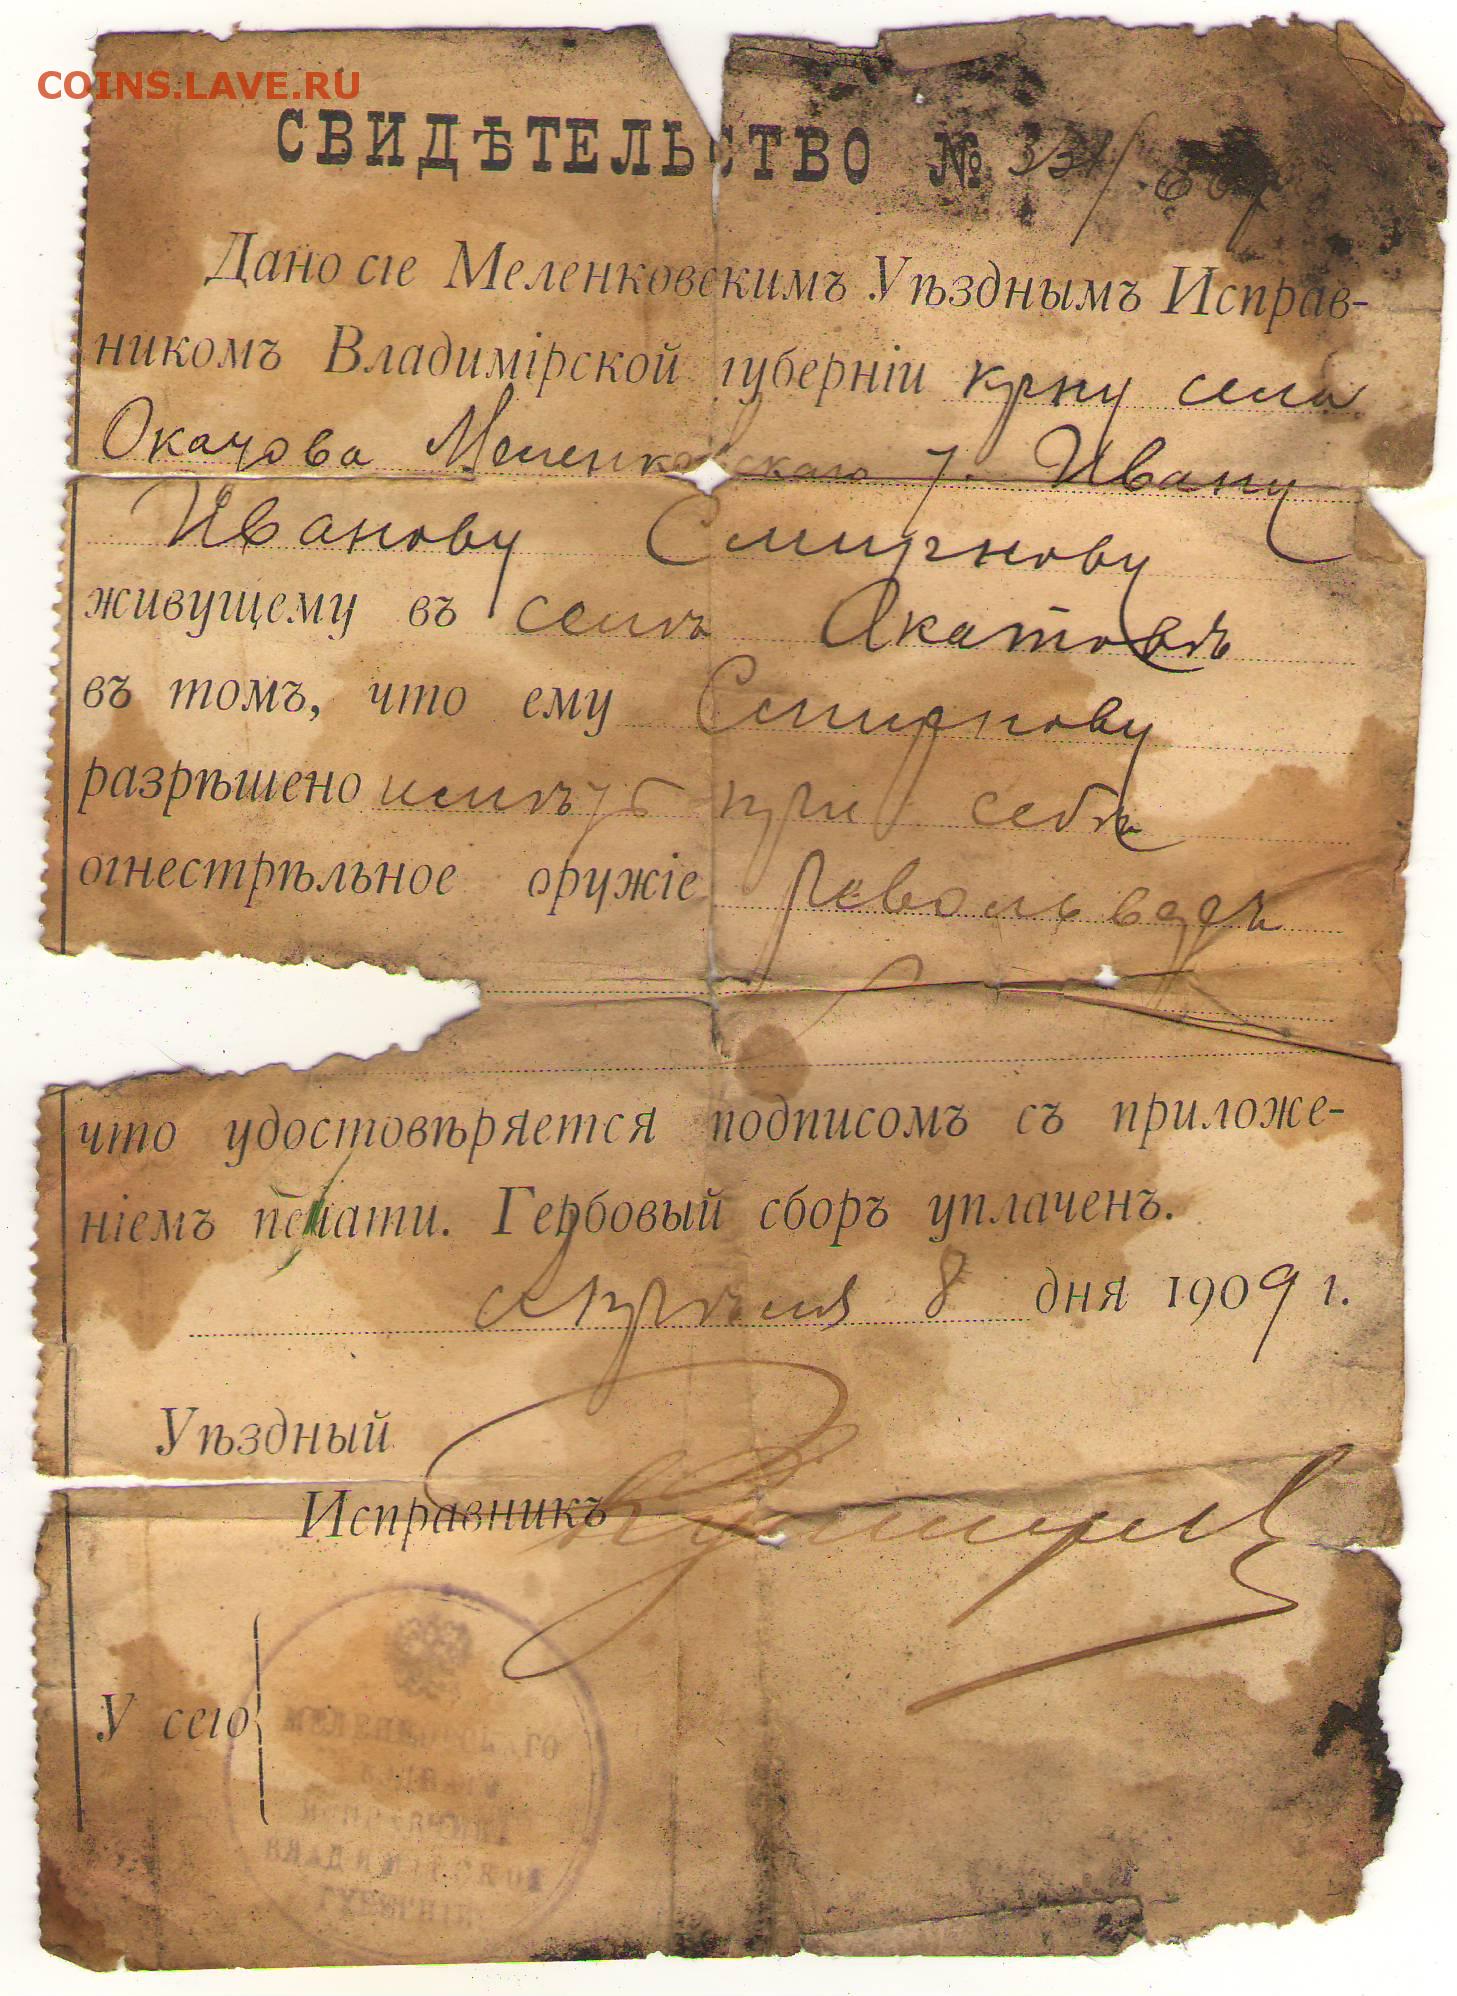 COINS.LAVE.RU
СВИДѢТЕЛЬСТВО №
Дано сіе Меленковскимъ Уѣзднымъ Исправ-
никомъ Владимірской губерніи крну села
Меленковскаго у. Ивану
Иванову Смирнову
живущему въ селѣ Акатовѣ
въ томъ, что ему Смирнову
разрѣшено имѣть при себѣ
огнестрѣльное оружіе револьверъ
что удостовѣряется подписомъ съ приложе-
ніемъ печати. Гербовый сборъ уплаченъ.
Апрѣля 8 дня 1909 г.
Уѣздный
Исправникъ
У сего